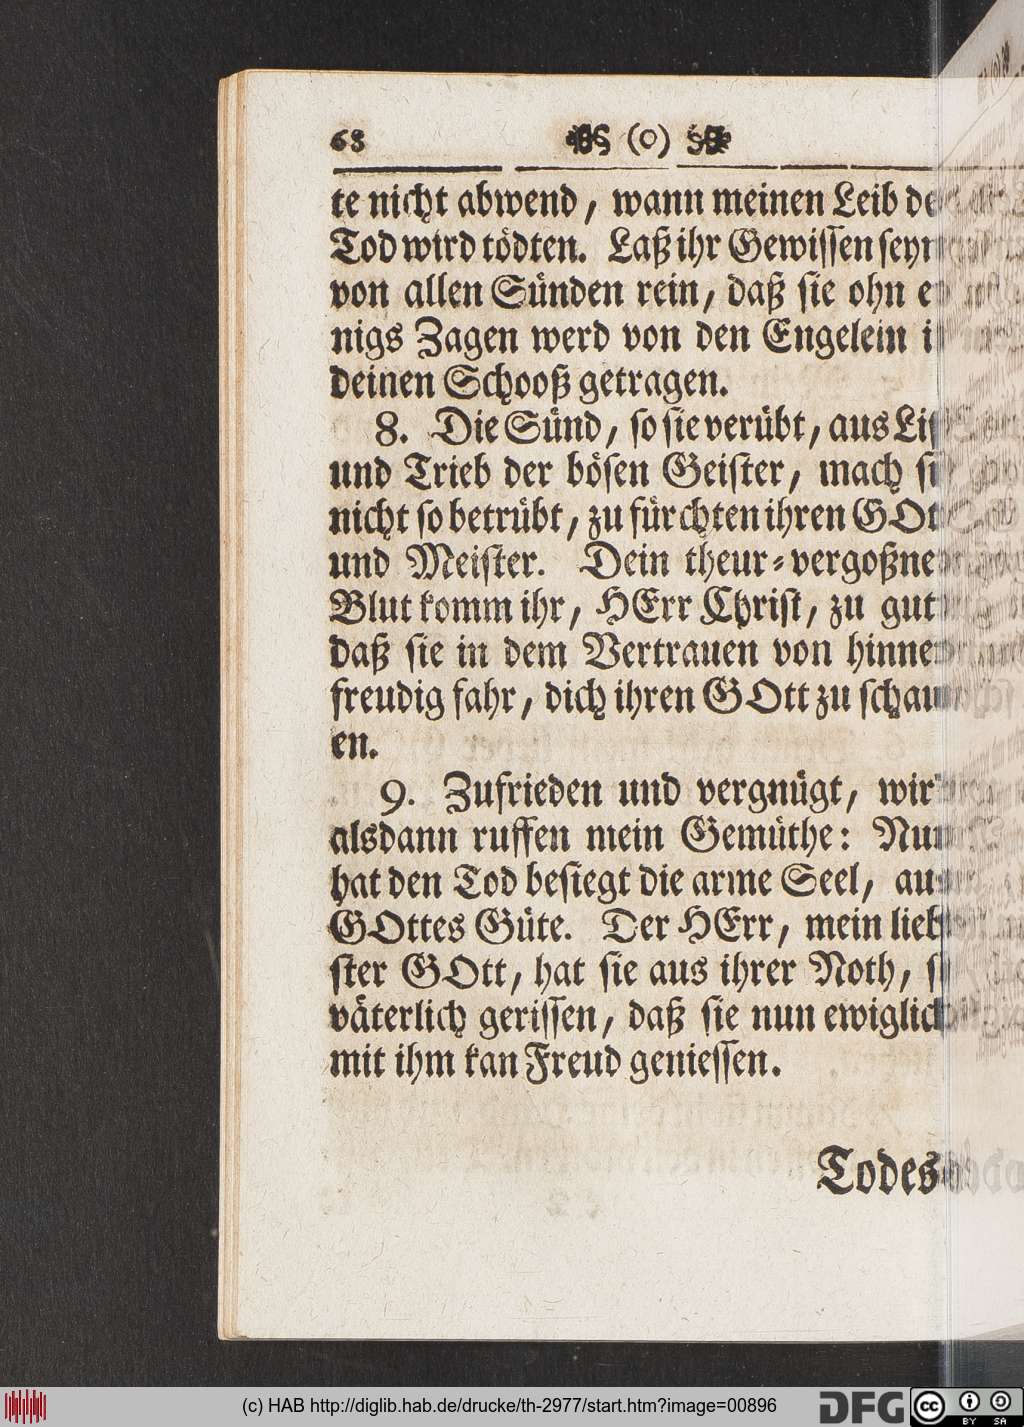 68 (o)
te nicht abwend, wann meinen Leib
Tod wird tödten. Laß ihr Gewissen seyn
von allen Sünden rein, daß sie ohn
nigs Zagen werd von den Engelein
deinen Schooß getragen.
8. Die Sünd, so sie verübt, aus
und Trieb der bösen Geister, mach
nicht so betrübt, zu fürchten ihren GOtt
und Meister. Dein theur-vergoßne
Blut komm ihr, HErr Christ, zu gut
daß sie in dem Vertrauen von hinne
freudig fahr, dich ihren GOtt zu schau
en.
9. Zufrieden und vergnügt, wir
alsdann ruffen mein Gemüthe: Nun
hat den Tod besiegt die arme Seel,
GOttes Güte. Der HErr, mein lieb
ster GOtt, hat sie aus ihrer Noth,
väterlich gerissen, daß sie nun ewiglich
mit ihm kan Freud geniessen.
Todes
(c) HAB http://diglib.hab.de/drucke/th-2977/start.htm?image=00896
DFG cc BY SA